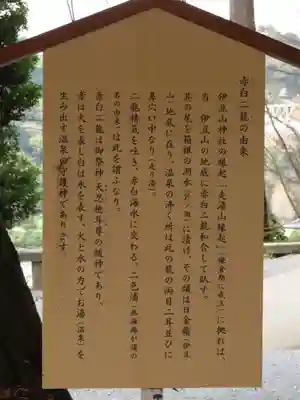 赤白二龍の由来
伊豆山神社の縁起『走湯山縁起』(鎌倉期に成立)に拠れば、
当 伊豆山の地底に赤白二龍和合して臥す。
其の尾を箱根の湖水(芦ノ湖)に漬け、その頭は日金嶺(伊豆
山)地底に在り、温泉の沸く所は此の龍の両目二耳並びに
鼻穴口中なり(走り湯)。
二龍精気を吐き、赤白海水に交わる。二色浦(熱海錦が浦の
名の由来)は此を謂ふなり。
赤白二龍は御祭神 天忍穂耳尊の随神であり、
赤は火を表し白は水を表す。火と水の力でお湯(温泉)を
生み出す温泉の守護神であります。